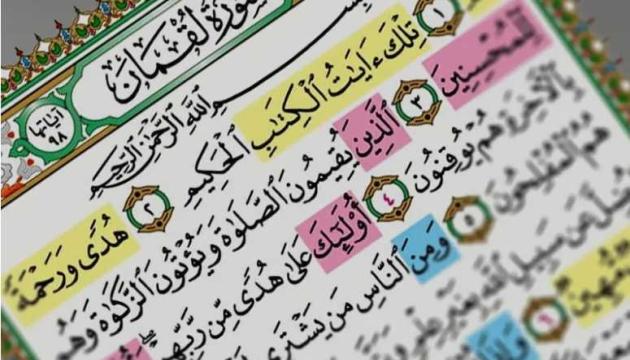 سُورَةُ لُقْمَانَ
آيَاتُهَا ٩٨
بِسْمِ ٱللَّهِ ٱلرَّحْمَٰنِ ٱلرَّحِيمِ
١ تِلْكَ ءَايَٰتُ ٱلْكِتَٰبِ ٱلْحَكِيمِ ٢ هُدًى وَرَحْمَةً
لِّلْمُحْسِنِينَ ٣ ٱلَّذِينَ يُقِيمُونَ ٱلصَّلَوٰةَ وَيُؤْتُونَ ٱلزَّكَوٰةَ وَهُم
بِٱلْءَاخِرَةِ هُمْ يُوقِنُونَ ٤ أُو۟لَٰٓئِكَ عَلَىٰ هُدًى مِّن رَّبِّهِمْ
هُمُ ٱلْمُفْلِحُونَ ٥ وَمِنَ ٱلنَّاسِ مَن يَشْتَرِى
عَن سَبِيلِ ٱللَّهِ بِغَيْرِ عِلْمٍ
مُّهِينٌ ٦ وَإِذَا